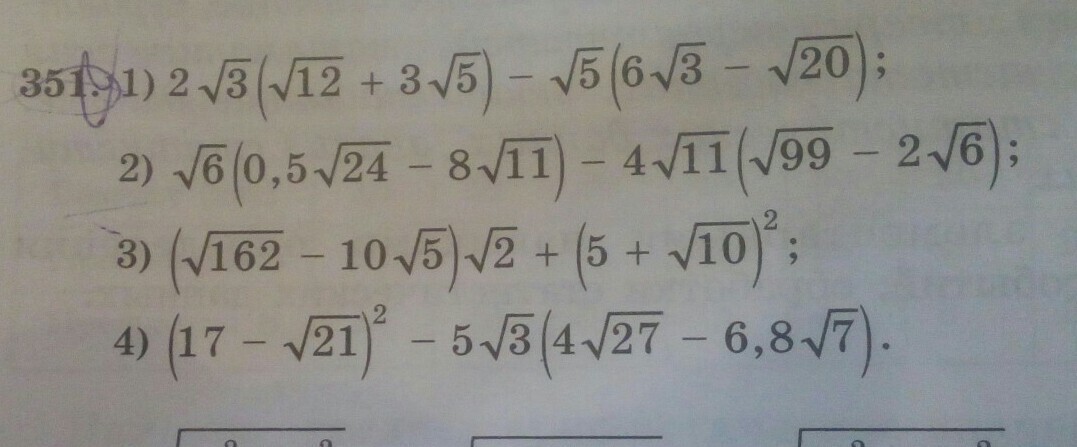 351. 1) 2√3(√12 + 3√5) − √5(6√3 − √20);
2) √6(0,5√24 − 8√11) − 4√11(√99 − 2√6);
3) (√162 − 10√5)√2 + (5 + √10)²;
4) (17 − √21)² − 5√3(4√27 − 6,8√7).